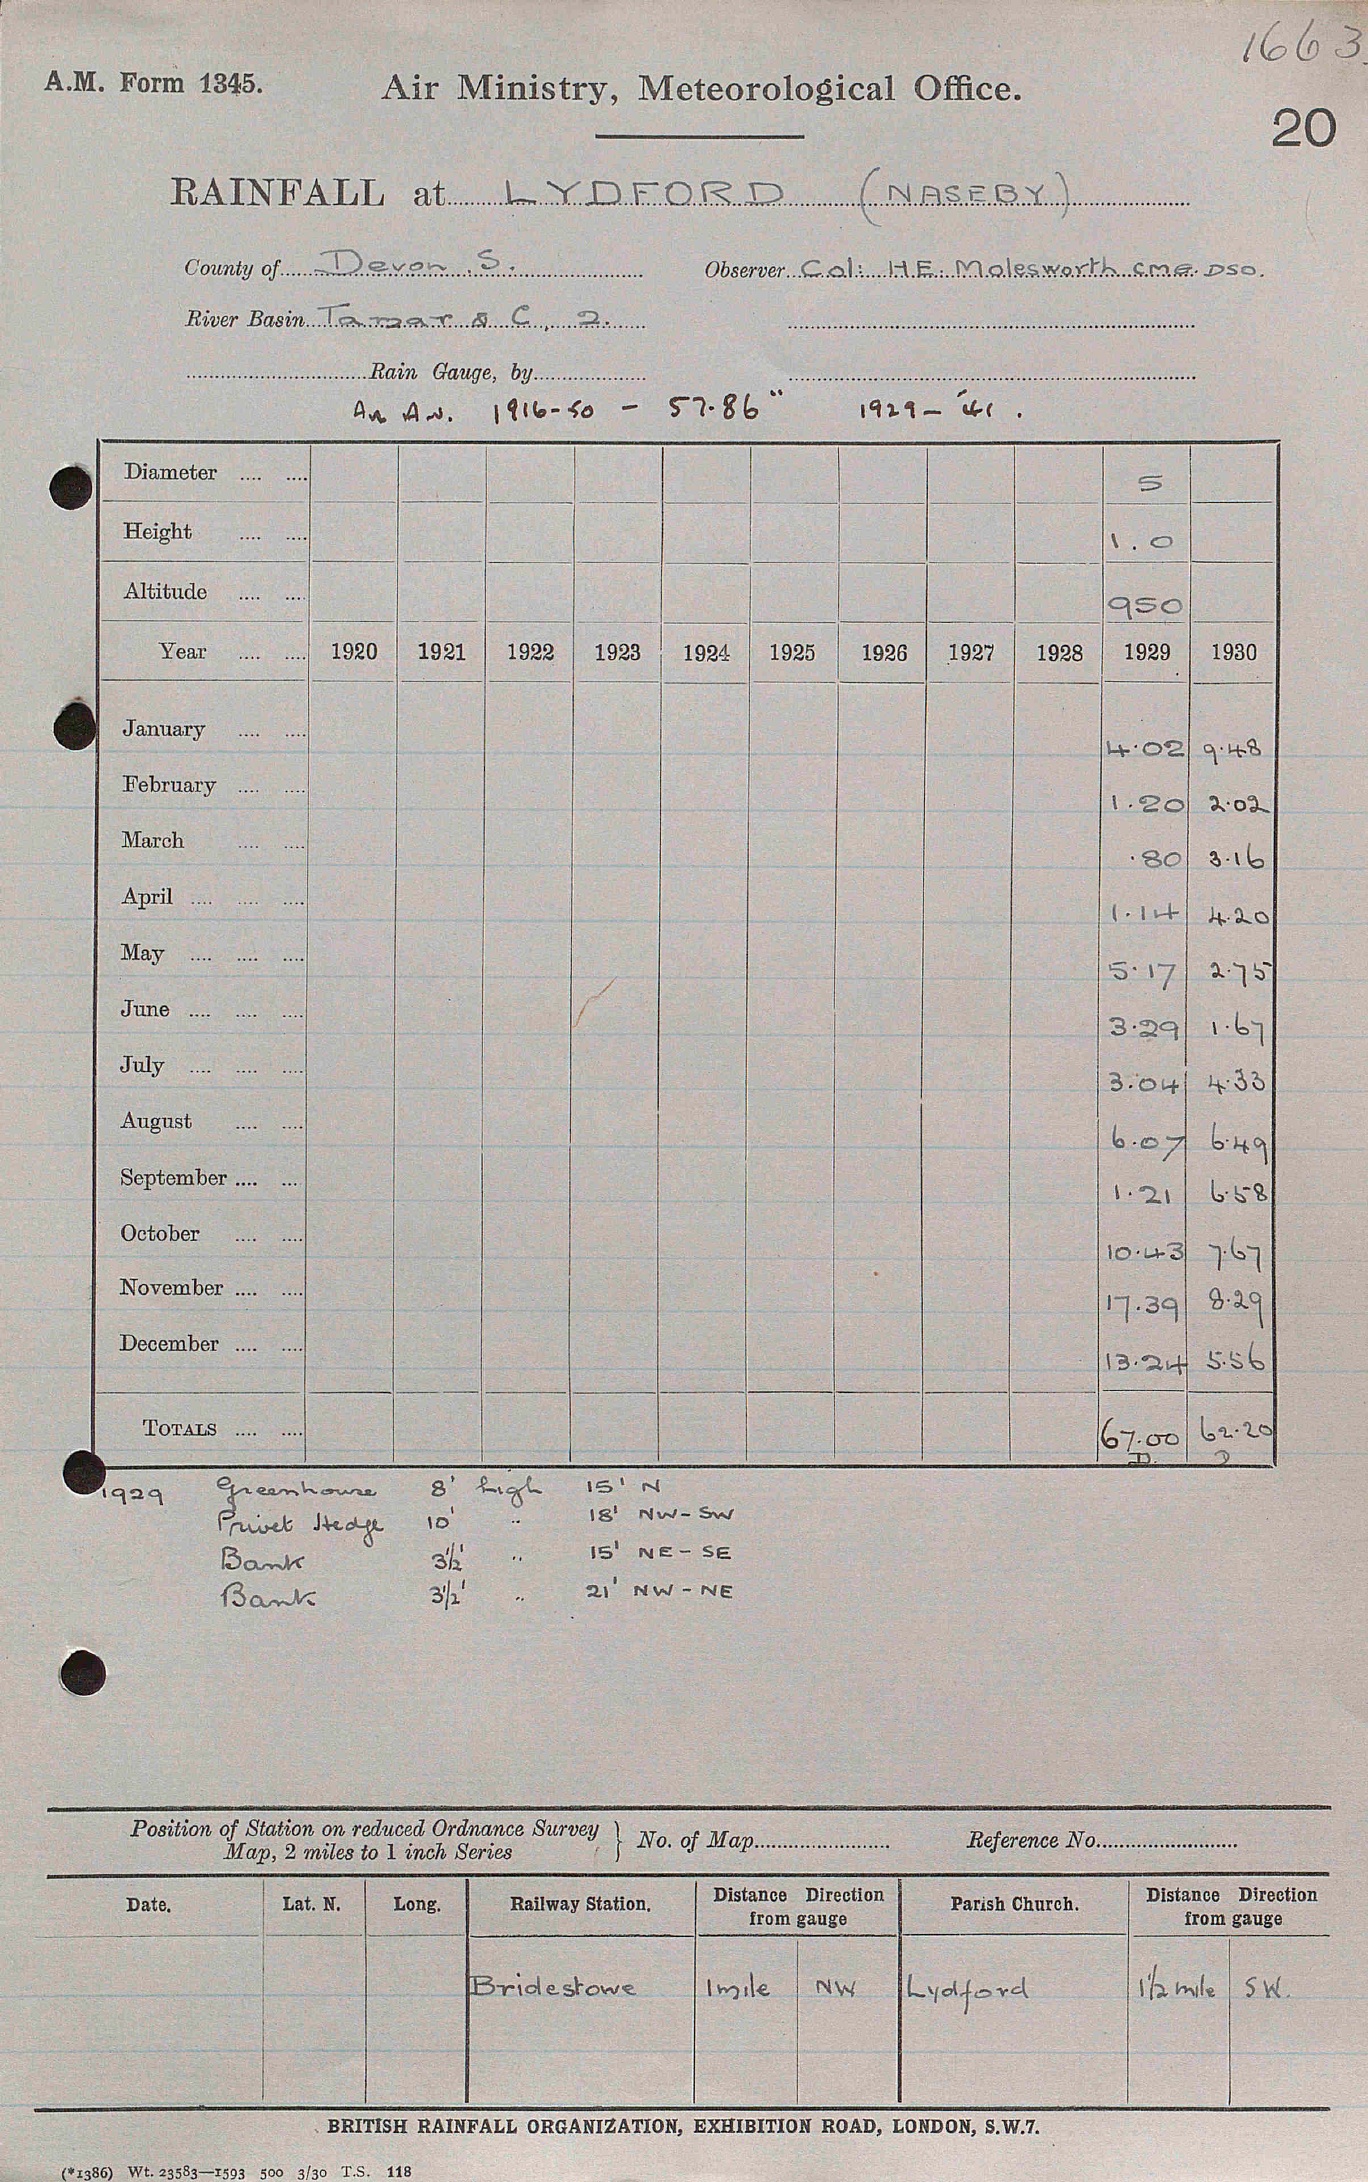 1663
A.M. Form 1345. Air Ministry, Meteorological Office.
20
RAINFALL at LYDFORD (NASEBY)
County of Devon S. Observer Col: H.E. Molesworth CMG. DSO.
River Basin Tamar & C, 2.
Rain Gauge, by
An Av. 1916-50 - 57.86" 1929-'41.
Diameter .... .... 5
Height .... .... 1.0
Altitude .... .... 950
Year .... .... 1920 1921 1922 1923 1924 1925 1926 1927 1928 1929 1930
January .... .... 4.02 9.48
February .... .... 1.20 2.02
March .... .... .80 3.16
April .... .... .... 1.14 4.20
May .... .... .... 5.17 2.75
June .... .... .... 3.29 1.67
July .... .... .... 3.04 4.33
August .... .... 6.07 6.49
September .... .... 1.21 6.58
October .... .... 10.43 7.67
November .... .... 17.39 8.29
December .... .... 13.24 5.56
TOTALS .... .... 67.00 62.20
D. D
1929 Greenhouse 8' high 15' N
Privet Hedge 10' " 18' NW-SW
Bank 3½' " 15' NE-SE
Bank 3½' " 21' NW-NE
Position of Station on reduced Ordnance Survey
Map, 2 miles to 1 inch Series } No. of Map Reference No.
Date. Lat. N. Long. Railway Station. Distance Direction from gauge Parish Church. Distance Direction from gauge
Bridestowe 1 mile NW Lydford 1½ mile SW.
BRITISH RAINFALL ORGANIZATION, EXHIBITION ROAD, LONDON, S.W.7.
(*1386) Wt. 23583—1593 500 3/30 T.S. 118